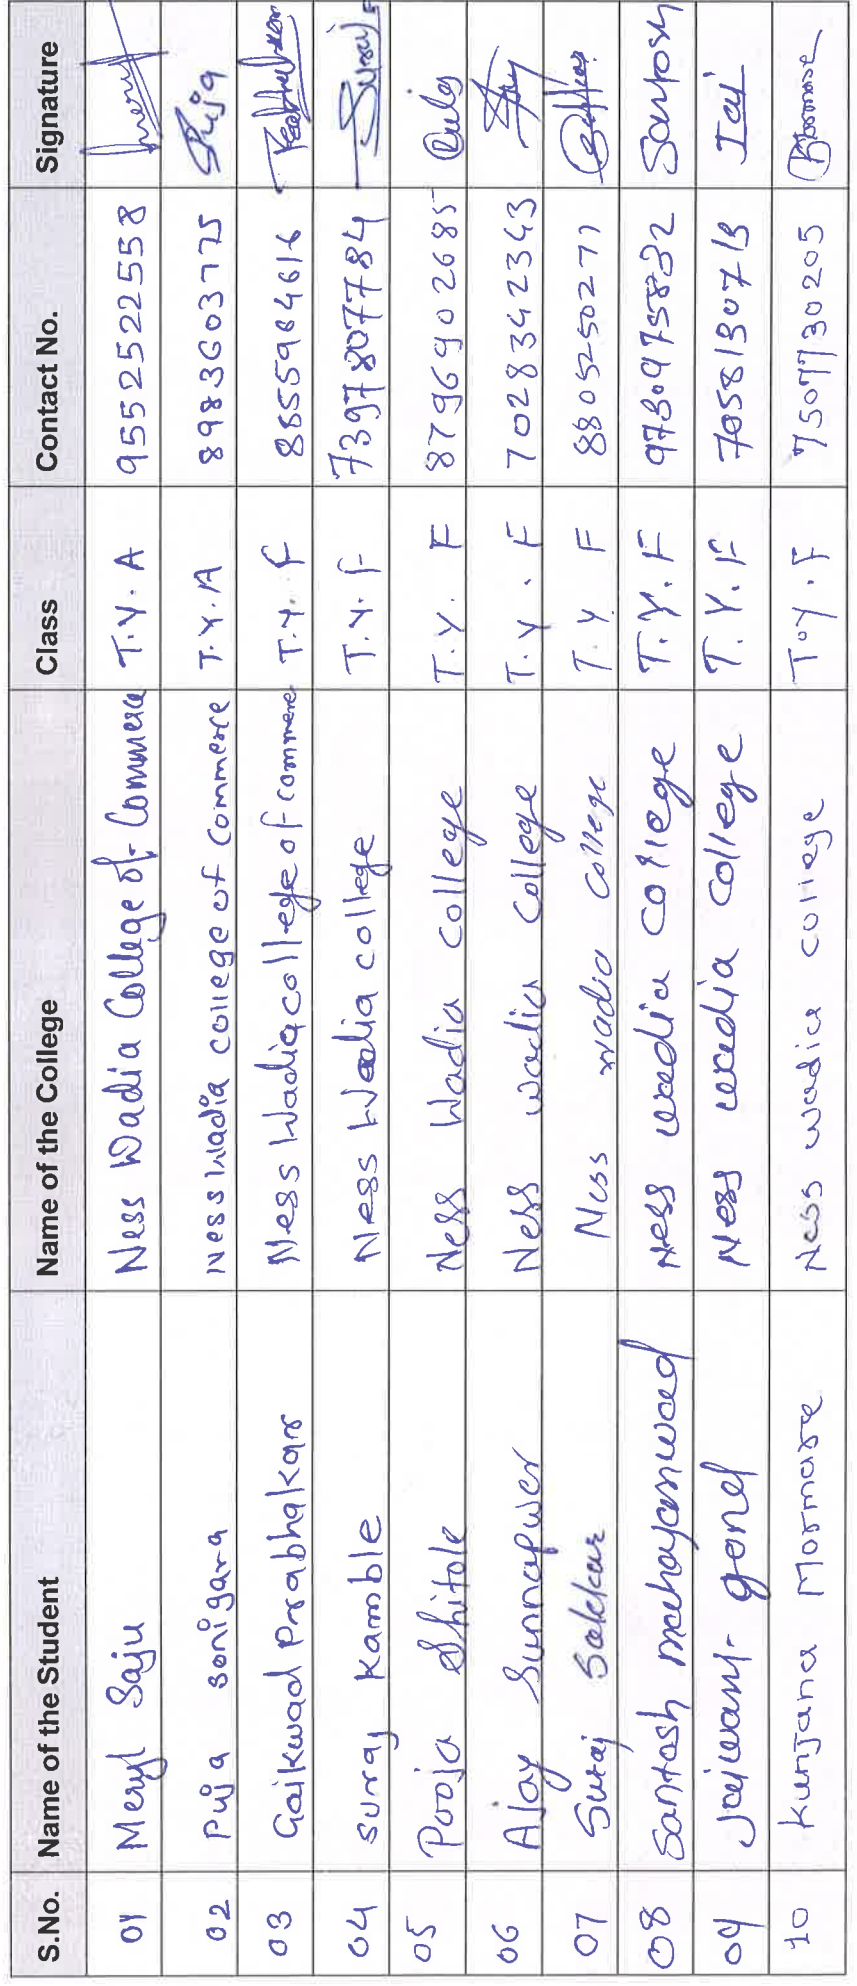 S.No. Name of the Student Name of the College Class Contact No. Signature
01 Meryl Saju Ness Wadia College of Commerce T.Y.A 9552522558
02 Puja sonigara Ness Wadia college of commerce T.Y.A 8983603775 Puja
03 Gaikwad Prabhakar Ness Wadia college of commerce T.Y.F 8855984616
04 suraj Kamble Ness Wadia college T.Y.F 7397807784 Suraj
05 Pooja Shitole Ness Wadia College T.Y. F 8796902685
06 Ajay Sunnapwer Ness wadia College T.Y.F 7028342343
07 Suraj Salekar Ness wadia College T.Y F 8805250271
08 Santosh mahayanwad Ness wadia College T.Y.F 9730975832 Santosh
09 Jaiwant gond Ness wadia College T.Y.F 7058130713 Jai
10 Kunjana Mormare Ness wadia college T.Y.F 7507730205